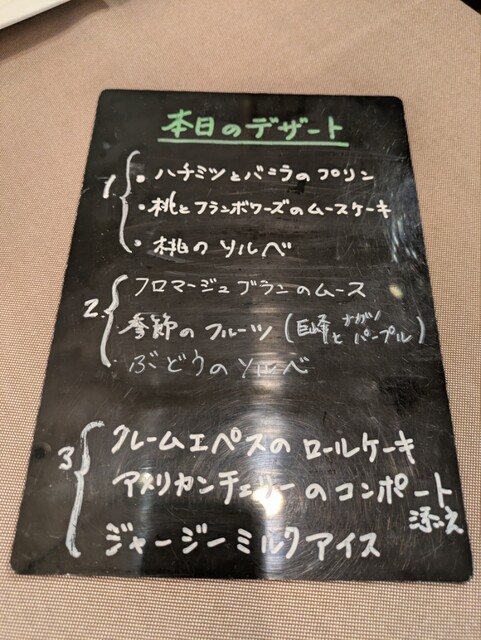 本日のデザート
1 ・ハチミツとバニラのプリン
・桃とフランボワーズのムースケーキ
・桃のソルベ
2 フロマージュブランのムース
季節のフルーツ（巨峰とナガノパープル）
ぶどうのソルベ
3 クレームエペスのロールケーキ
アメリカンチェリーのコンポート
添え
ジャージーミルクアイス